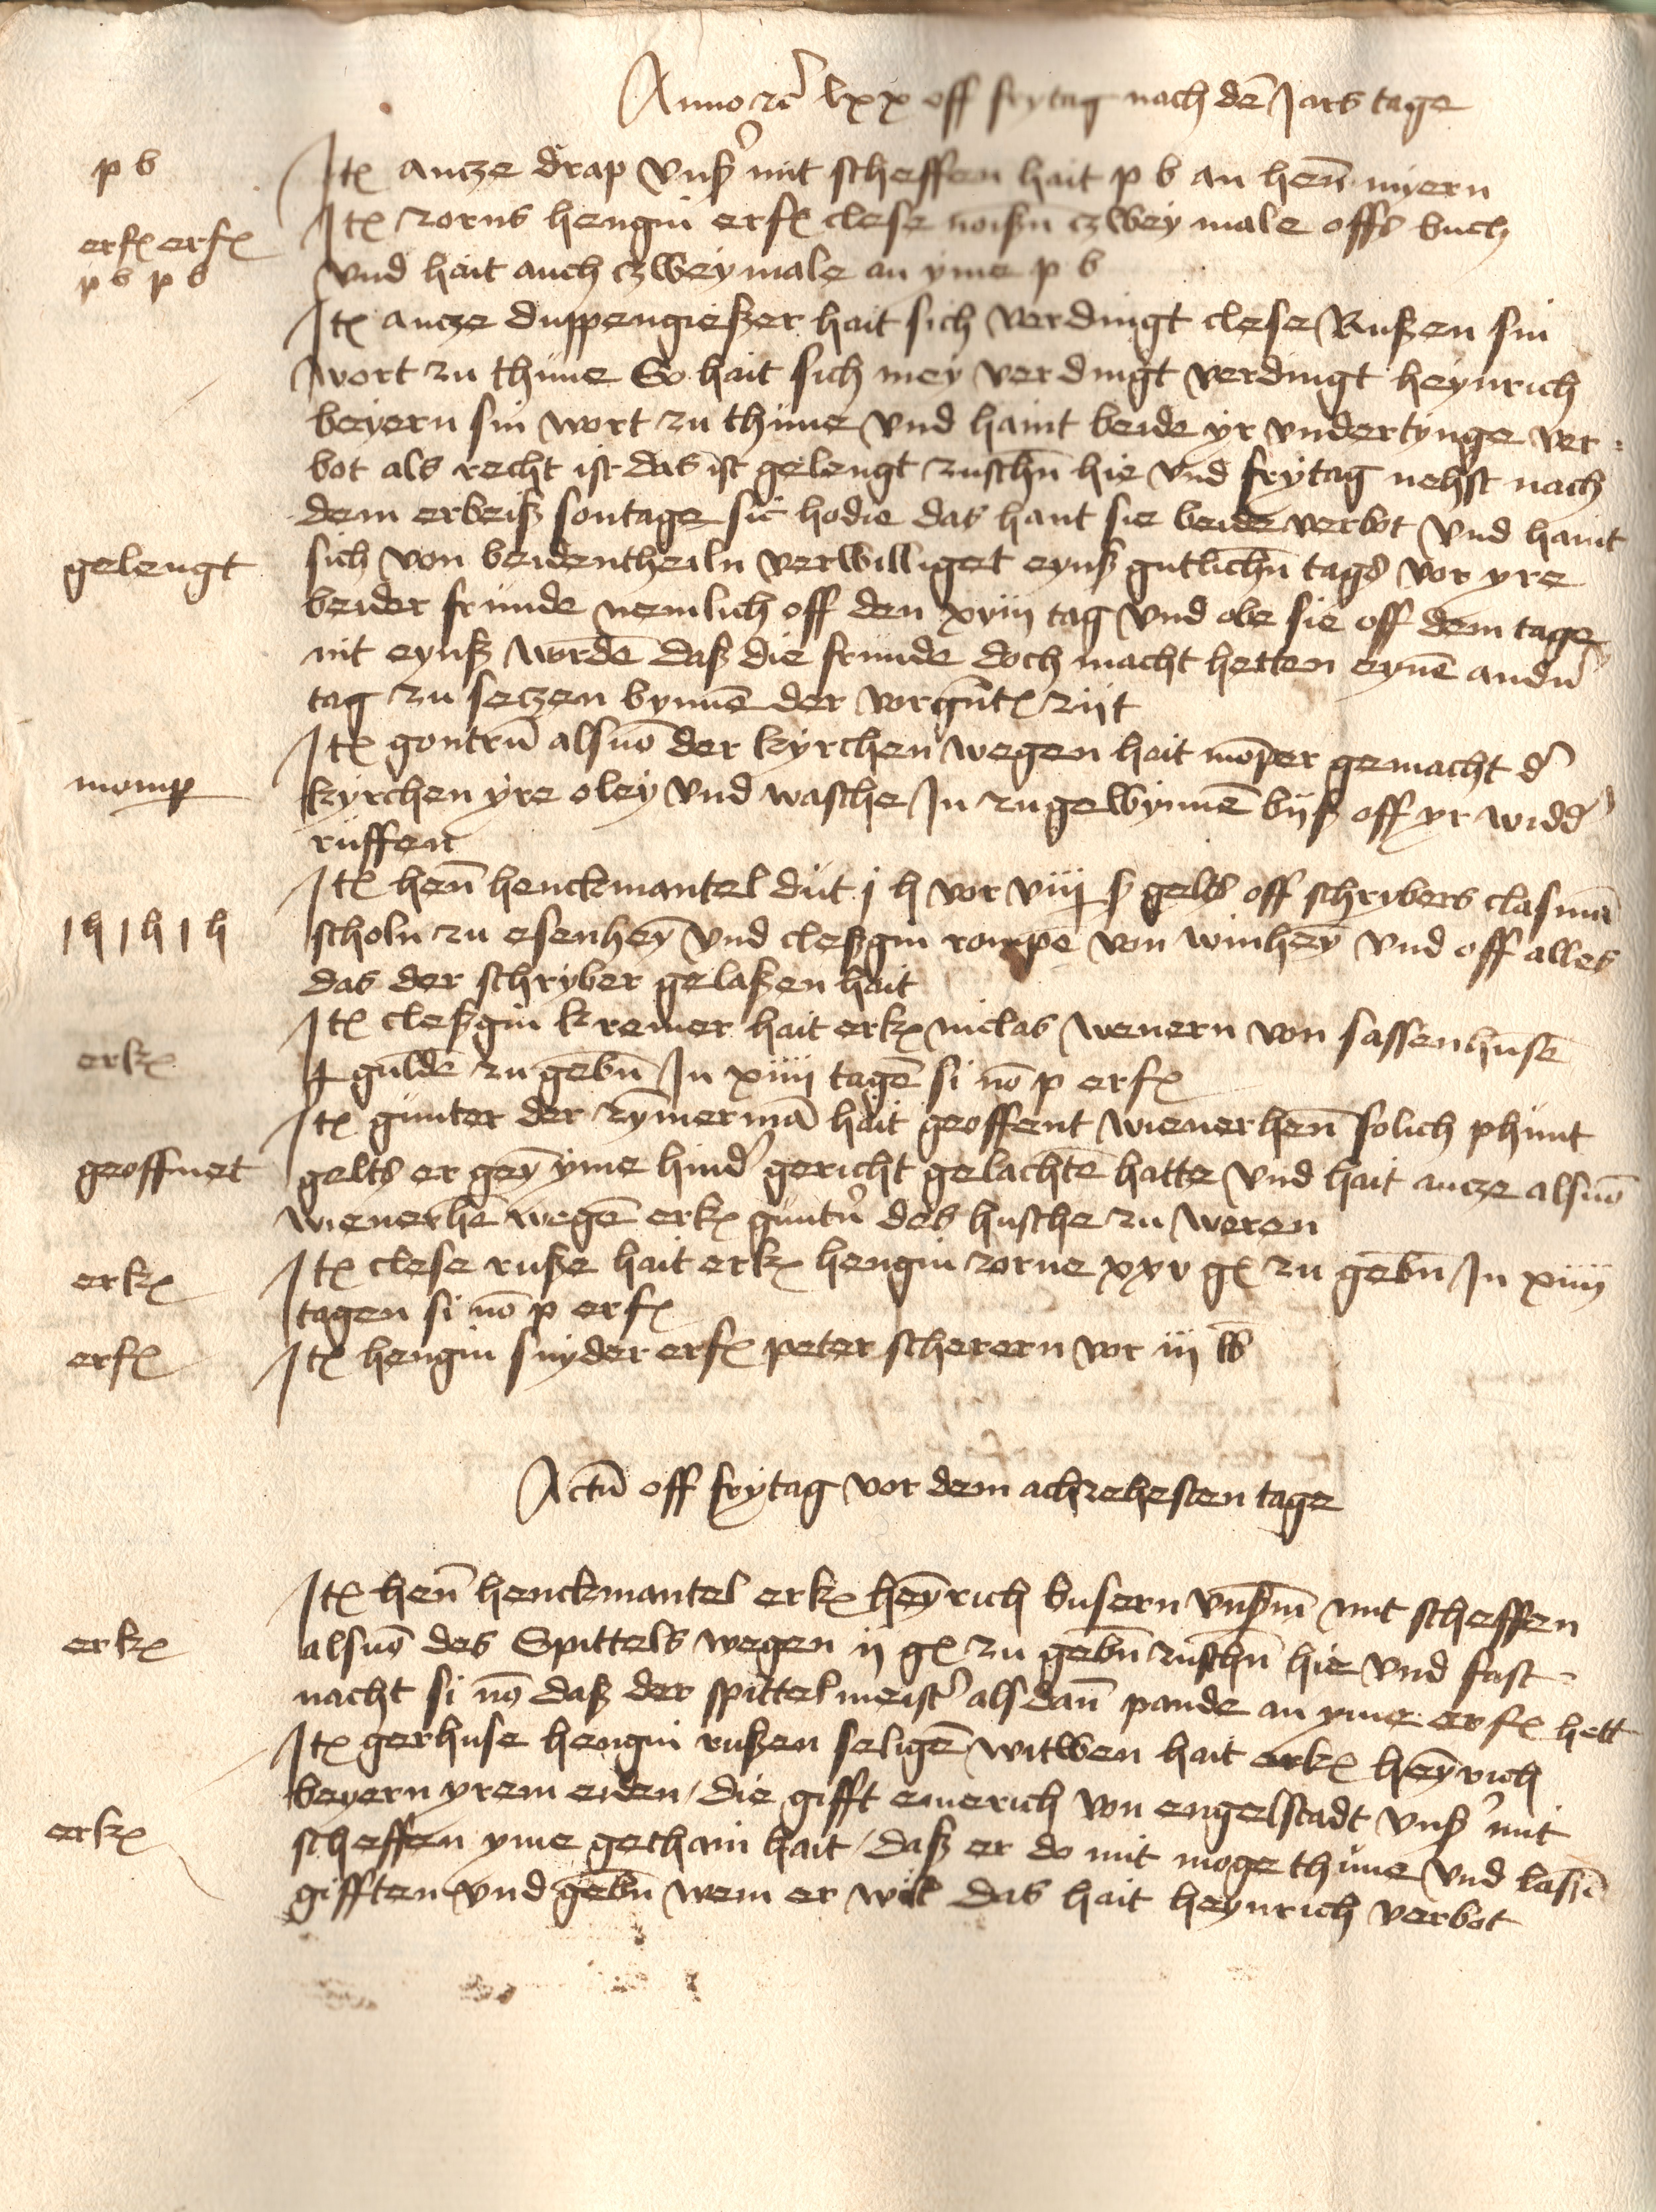 Anno rc lxx off frytag nach dē Jars tage
p b
Itē antze drap vnß' mit scheffen hait p b an henn myern
erf erf
Itē zorns hengin erf clese noißn czwey male offs buch
p b p b
vnd hait auch czwey male an yme p b
Itē antze duppengießer hait sich verdingt clese Rußen sin
wort zu thune So hait sich mey verdingt verdingt heynrich
beyern sin wort zu thune vnd haint beide yr vndertynge ver=
bot als recht ist das ist gelengt zuschn hie vnd frytag nehst nach
dem erbeiß sontage sic hodie das hant sie beide verbot vnd haint
gelengt
sich von beidentheiln verwilliget eynß gutlichn tags vor yre
beider frunde nemlich off den xviij tag vnd obe sie off dem tage
nit eynß wordē daß die frunde doch macht hetten eynē andn
tag zu setzen bynnē der vorgnt zijt
Itē gontrū alsnō der kyrchen wegen hait mōper gemacht d'
momp
kyrchen yre oley vnd wasche In zugewynnē bijß off yr widd'
ruffen
Itē henn henckmantel dut j h vor viij ß gelts off schrybers clasmā
I h I h I h
scholn zu esenheȳ vnd cleßgin rompē von winheȳ vnd off alles
das der schryber gelaßen hait
Itē cleßgin kremer hait erk niclas wenern von sassenhusē
erk
j guldē zu gebn In xiiij tagē si nō p erf
Itē gunter der zȳmermā hait geoffent wienerhenn solich phunt
geoffnet
gelts er geȳ yme hind' gericht gelachtē hatte vnd hait antze alsnō
wienerhē wegē erk guntn des husche zu weren
erk
Itē clese ruße hait erk hengin zorne xxv g zu gebn In xiiij
tagen si nō p erf
erf
Itē hengin snyder erf peter scherern vor iij lb
Actū off frytag vor dem achtzehesten tage
Itē henn henckmantel erk heȳrich busern vnßm mit scheffen
erk
alsnō des Spittels wegen ij g zu gebn zuschn hie vnd fast=
nacht si nō daß der spittelmeist' alsdan pande an yme erf hett
Itē gerhuse hengin rußen seligē witwen hait erk heȳrich
beyern yrem eiden / die gifft emerich von engelstadt vnß' mit
erk
scheffen yme gethain hait / daß er do mit moge thune vnd laßē
gifften vnd gebn wem er wil das hait heynrich verbot